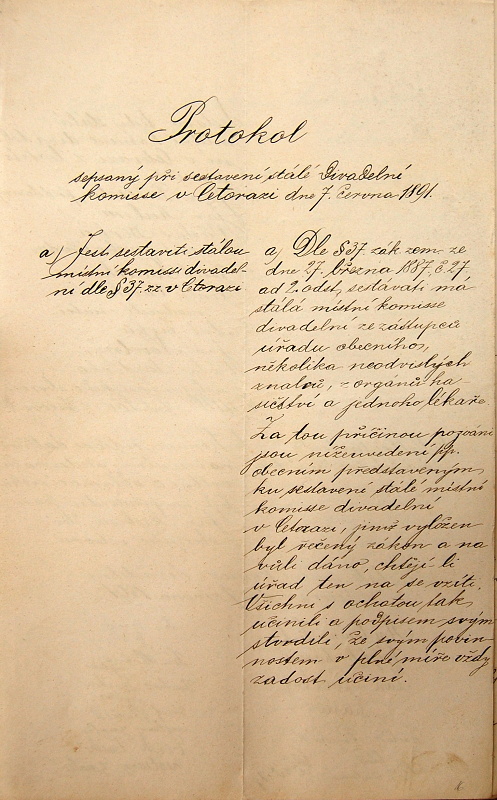 Protokol
sepsaný při sestavení stálé Divadelní
komisse v Ctorazi dne 7. června 1891.
a) Jest sestaviti stálou
místní komissi divadel-
ní dle § 37. zz. v Ctorazi
a) Dle § 37. zák. zem. ze
dne 27. března 1887, č. 27
od 2. odst, sestávati má
stálá místní komisse
divadelní ze zástupců
úřadu obecního,
několika neodvislých
znalců, z orgánů ha-
sičství a jednoho lékaře.
Za tou příčinou pozváni
jsou nížeuvedení pp.
obecním představeným
ku sestavení stálé místní
komisse divadelní
v Ctorazi, jimž vyložen
byl řečený zákon a na
vůli dáno, chtějí-li
úřad ten na se vzíti.
Všichni s ochotou tak
učinili a podpisem svým
stvrdili, že svým povin-
nostem v plné míře vždy
zadost učiní.